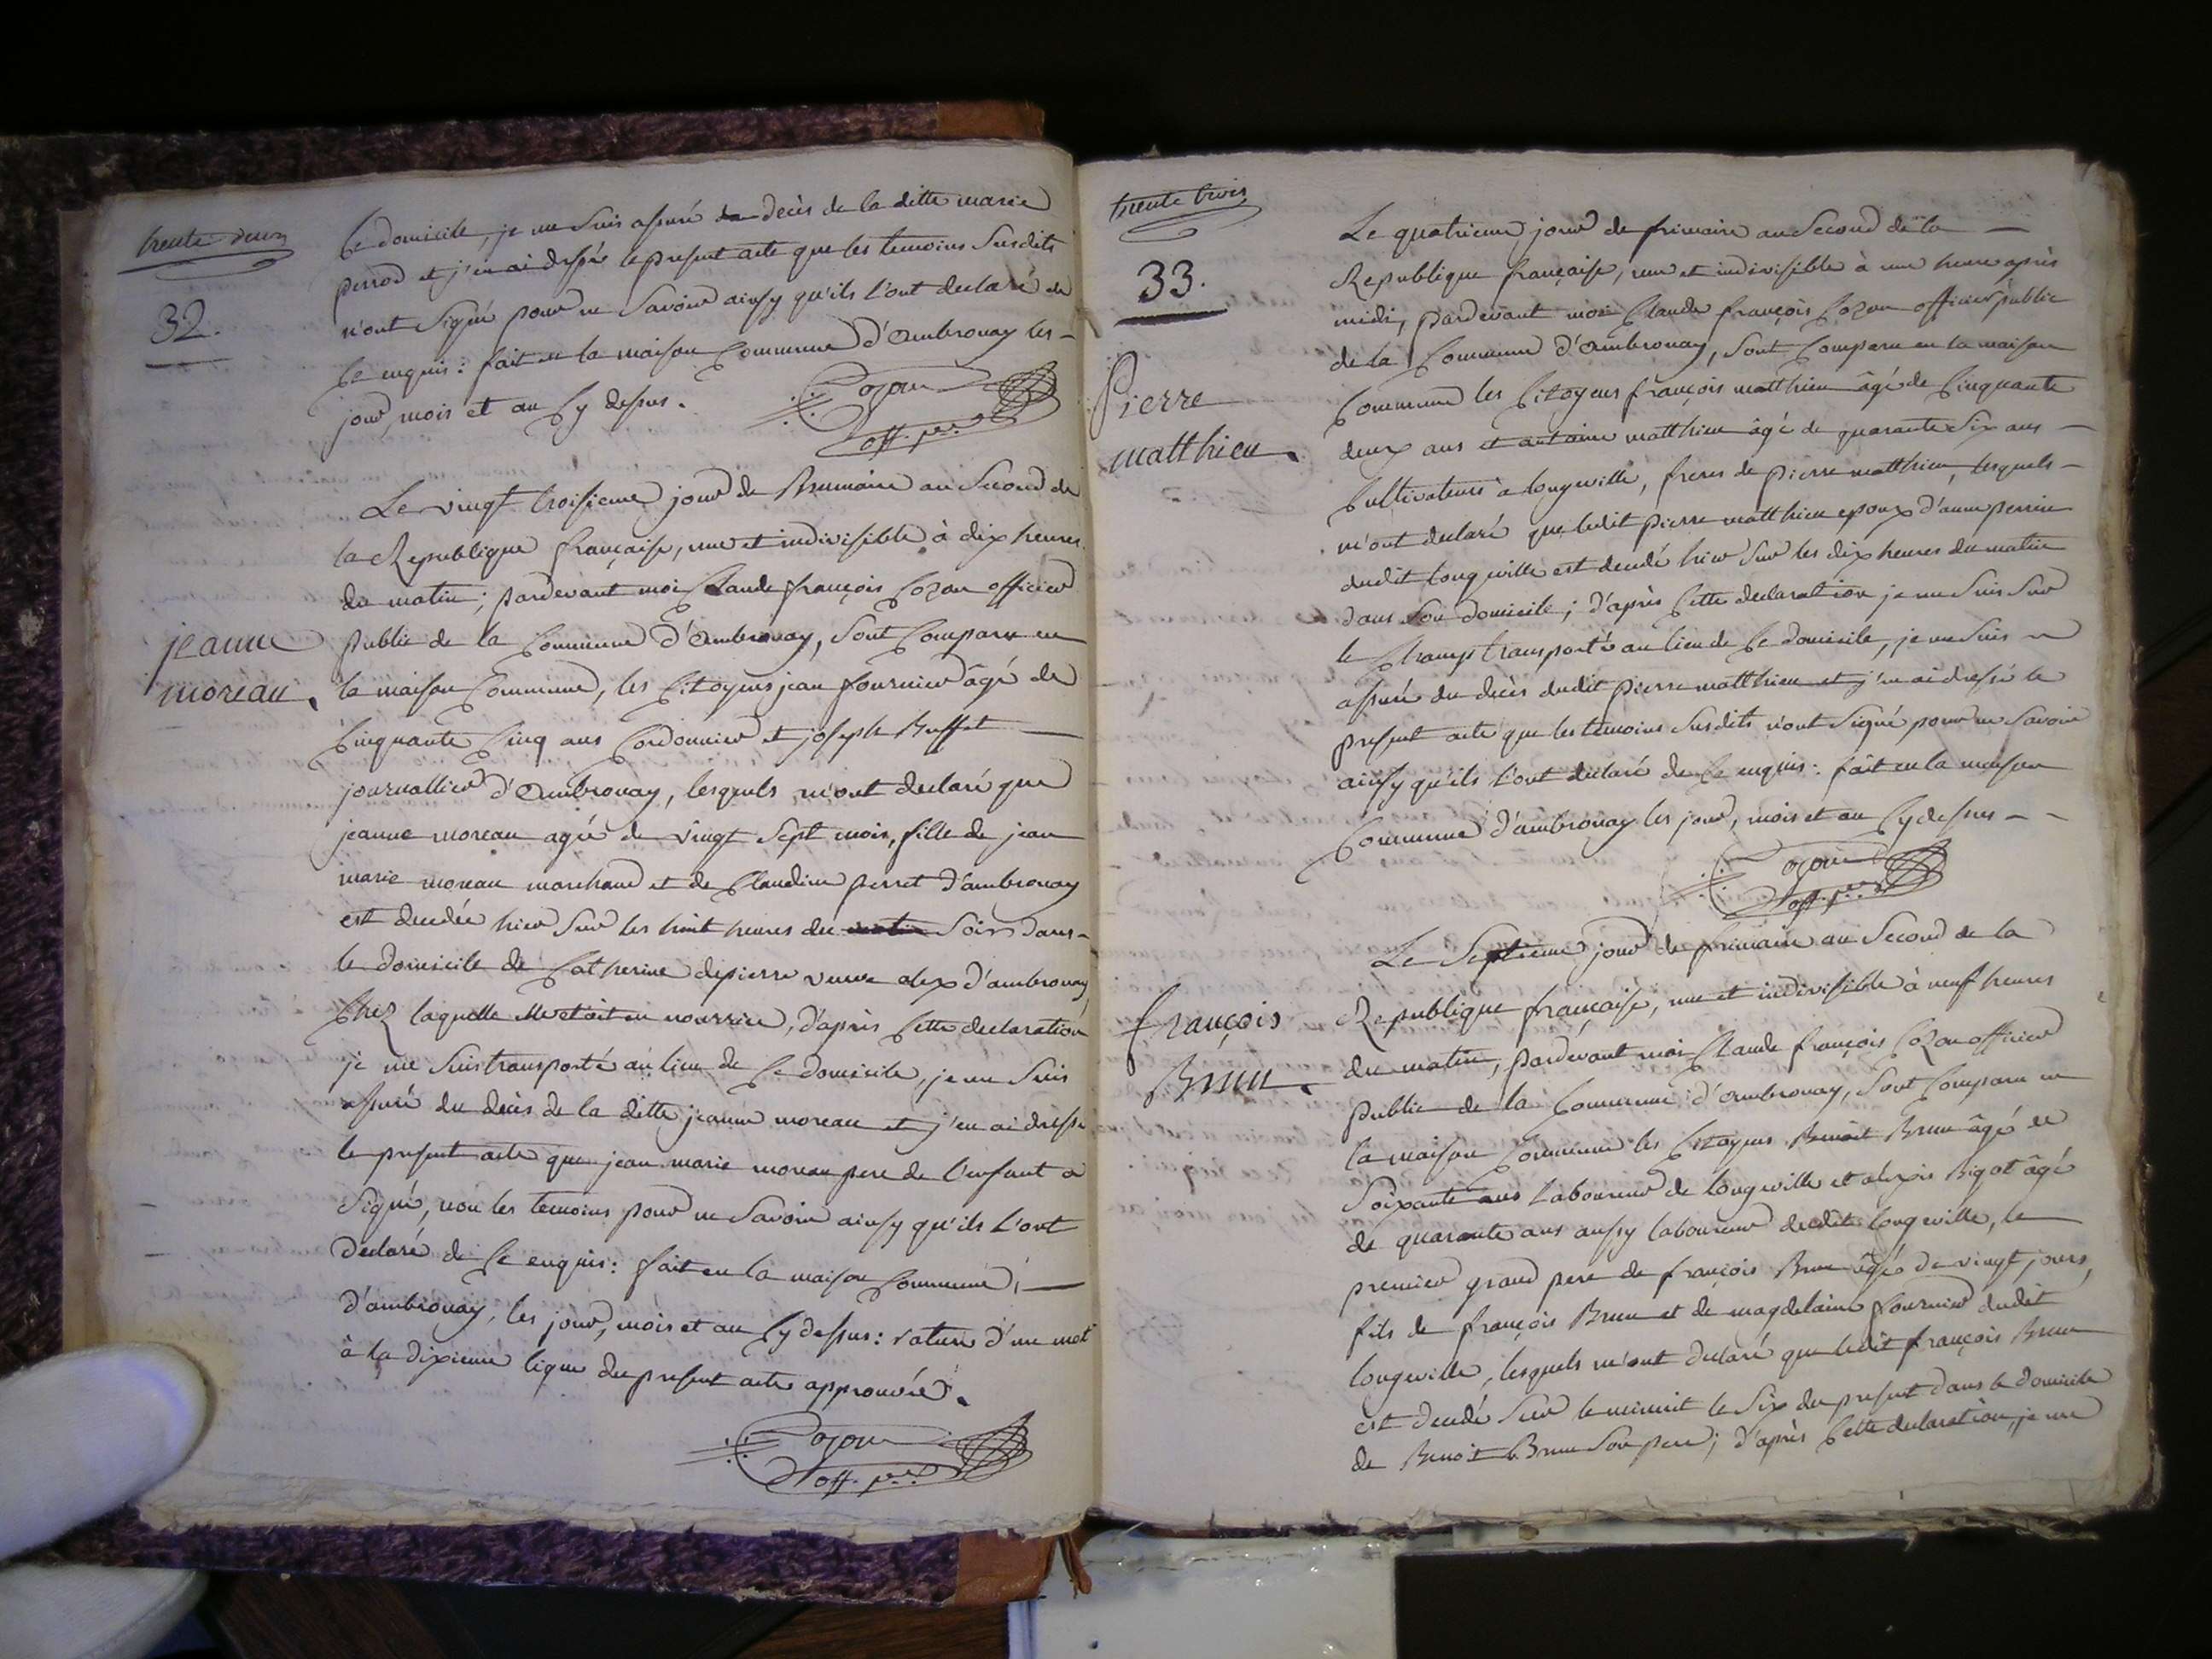 trente deux
32.
ce domicile, je me suis assuré du decès de la ditte marie
perrod et j'en ai dressé le present acte que les temoins susdits
n'ont signé pour ne savoir ainsy qu'ils l'ont declaré de
ce enquis : fait en la maison commune d'ambronay les -
jour, mois et an cy dessus.
Cozon
off. p.er
jeanne
moreau.
Le vingt troisieme jour de Brumaire an second de
la Republique française, une et indivisible à dix heures
du matin ; pardevant moi Claude françois Cozon officier
public de la commune d'ambronay, sont comparu en
la maison commune, les citoyens jean fournier âgé de
cinquante cinq ans cordonnier et joseph Buffet
journallier d'ambronay, lesquels m'ont declaré que
jeanne moreau agée de vingt sept mois, fille de jean
marie moreau marchand et de Claudine perret d'ambronay
est decedée hier sur les huit heures du matin soir dans -
le domicile de Catherine depierre veuve d'ambronay
chez laquelle elle etoit en nourrice, d'après cette declaration
je me suis transporté au lieu de ce domicile, je me suis
assuré du decès de la ditte jeanne moreau et j'en ai dressé
le present acte que jean marie moreau pere de l'enfant a
signé, non les temoins pour ne savoir ainsy qu'ils l'ont
declaré de ce enquis : fait en la maison commune
d'ambronay, les jour, mois et an cy dessus : rature d'un mot
à la dixieme ligne du present acte approuvée.
Cozon
off. p.er
trente trois
33.
Pierre
matthieu.
Le quatrieme jour de frimaire an second de la
Republique française, une et indivisible à une heure après
midi, pardevant moi Claude françois Cozon officier public
de la commune d'ambronay, sont comparu en la maison
commune les citoyens françois matthieu âgé de cinquante
deux ans et antoine matthieu âgé de quarante six ans -
cultivateurs à longeville, freres de pierre matthieu, lesquels -
m'ont declaré que ledit pierre matthieu epoux d'anne perrin
dudit longeville est decedé hier sur les dix heures du matin
dans son domicile ; d'après cette declaration je me suis sur
le champs transporté au lieu de ce domicile, je me suis
assuré du decès dudit pierre matthieu et j'en ai dressé le
present acte que les temoins susdits n'ont signé pour ne savoir
ainsy qu'ils l'ont declaré de ce enquis : fait en la maison
commune d'ambronay les jour, mois et an cy dessus - -
Cozon
off. p.er
françois
Brun.
Le septieme jour de frimaire an second de la
Republique française, une et indivisible à neuf heures
du matin, pardevant moi Claude françois Cozon officier
public de la commune d'ambronay, sont comparu en
la maison commune les citoyens Benoit Brun âgé de
soixante ans laboureur de longeville et alexis Bigot âgé
de quarante ans aussy laboureur dudit longeville, le
premier grand pere de françois Brun âgé de vingt jours,
fils de françois Brun et de magdelaine fournier dudit
longeville, lesquels m'ont declaré que ledit françois Brun
est decedé sur le minuit le six du present dans le domicile
de Benoit Brun son pere ; d'après cette declaration, je me